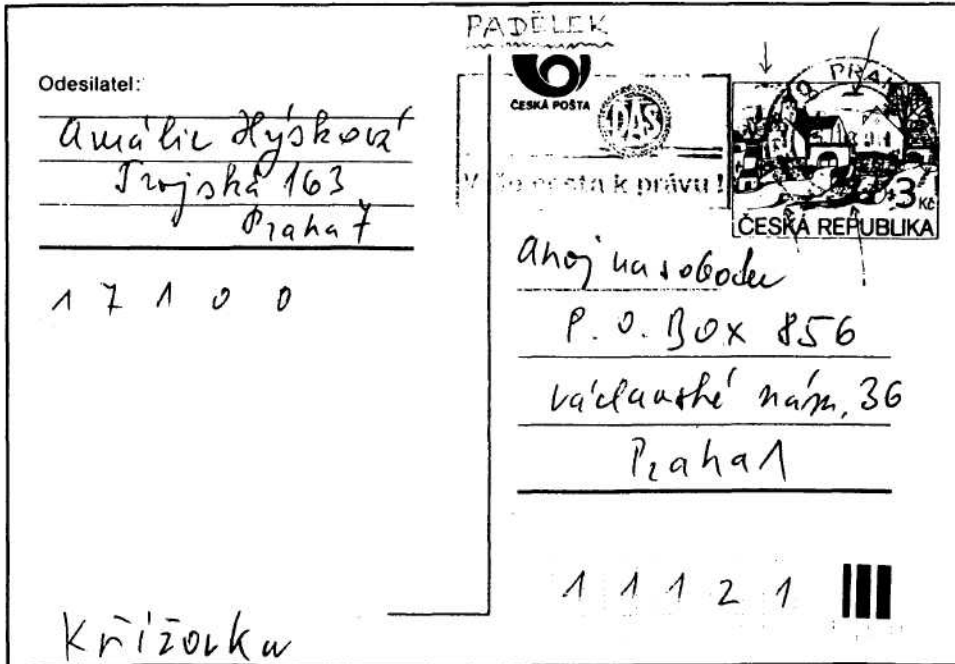 PADĚLEK
Odesilatel:
Amálie Hýsková
Trojská 163
Praha 7
17100
ČESKÁ POŠTA
DAS
k právu!
PRAHA
3 Kč
ČESKÁ REPUBLIKA
Ahoj na sobotu
P.O. BOX 856
Václavské nám. 36
Praha 1
11121
Křížovka